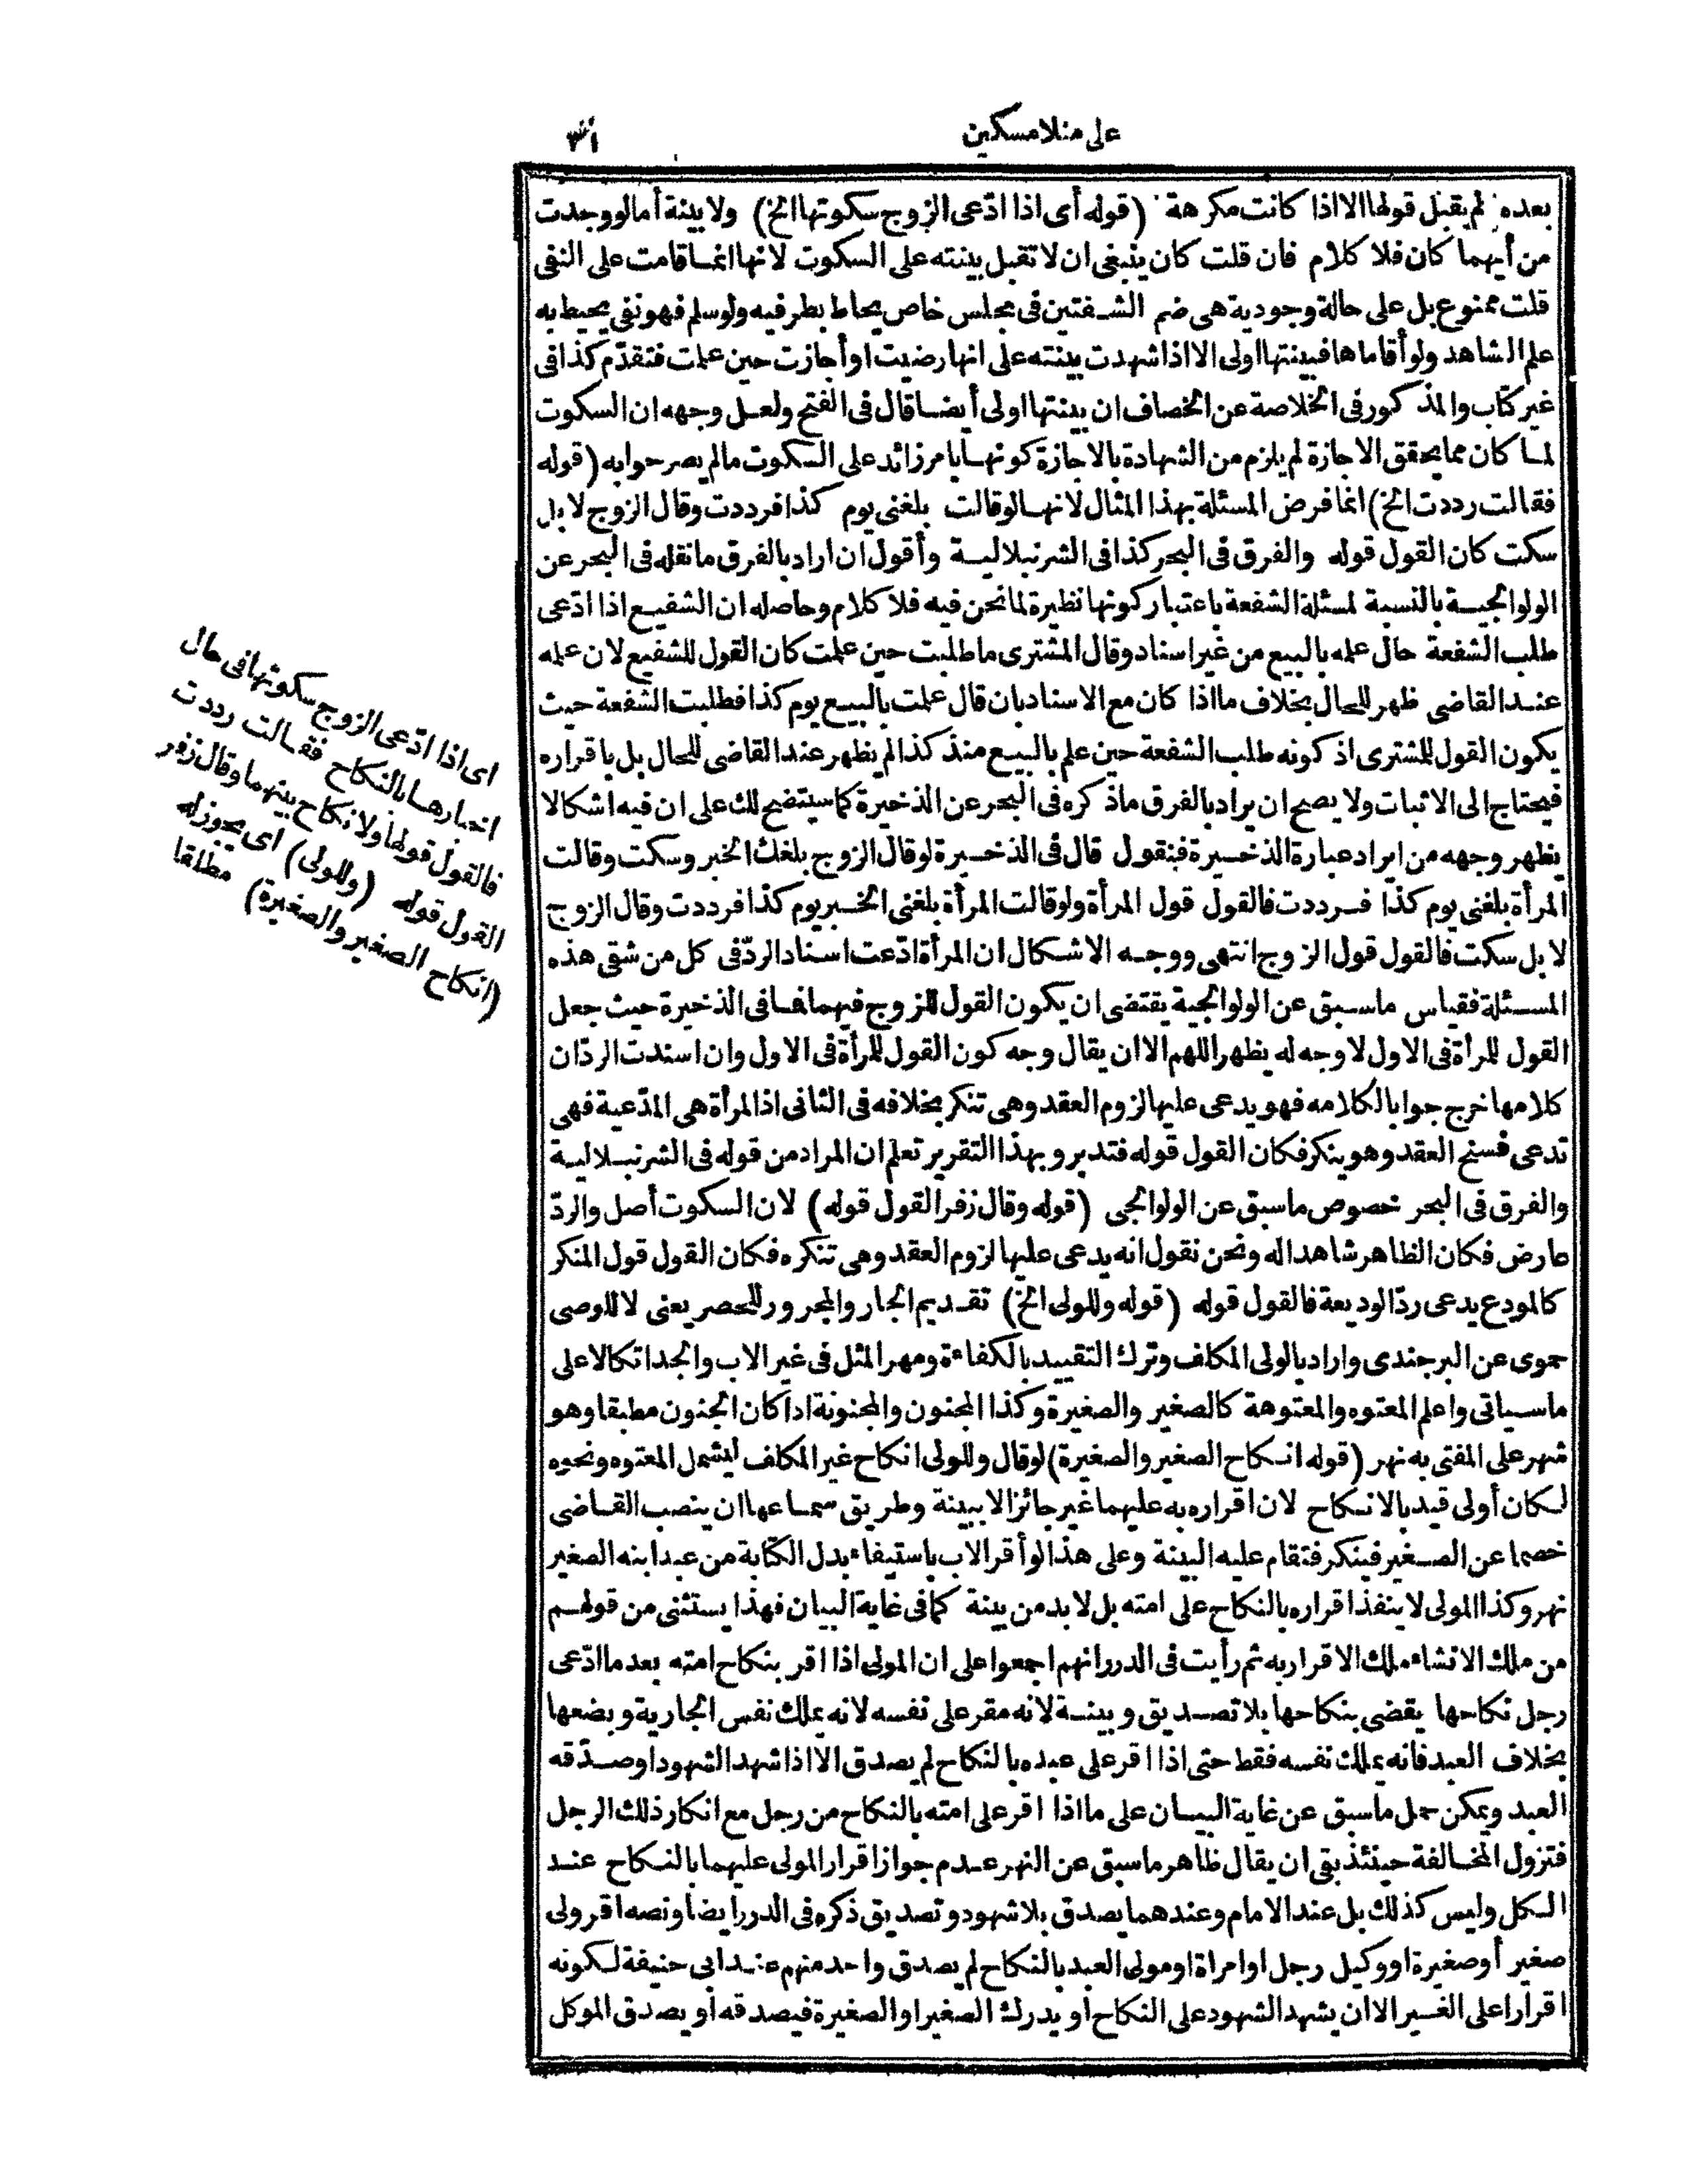 على منلا مسكين
٣١
بعده لم يقبل قولها الا اذا كانت مكرهة (قوله أى اذا ادّعى الزوج سكوتها الخ) ولا بينة أما لو وجدت
من أيهما كان فلا كلام فان قلت كان ينبغى ان لا تقبل بينته على السكوت لانها انما قامت على النفى
قلت ممنوع بل على حالة وجودية هى ضم الشفتين فى مجلس خاص يحاط بطرفيه ولو سلم فهو نفى يحيط به
علم الشاهد ولو أقاماها فبينتها اولى الا اذا شهدت بينته على انها رضيت او أجازت حين علمت فتقدّم كذا فى
غير كتاب والمذكور فى الخلاصة عن الخصاف ان بينتها اولى أيضا قال فى الفتح ولعل وجهه ان السكوت
لما كان مما يحقق الاجازة لم يلزم من الشهادة بالاجازة كونها بامر زائد على السكوت مالم يصرحوا به (قوله
فقالت رددت الخ) انما فرض المسئلة بهذا المثال لانها لو قالت بلغنى يوم كذا فرددت وقال الزوج لا بل
سكت كان القول قوله والفرق فى البحر كذا فى الشرنبلالية وأقول ان اراد بالفرق ما نقله فى البحر عن
الولوالجية بالنسبة لمسئلة الشفعة باعتبار كونها نظيرة لما نحن فيه فلا كلام وحاصله ان الشفيع اذا ادّعى
طلب الشفعة حال علمه بالبيع من غير اسناد وقال المشترى ما طلبت حين علمت كان القول للشفيع لان علمه
عند القاضى ظهر للحال بخلاف ما اذا كان مع الاسناد بان قال علمت بالبيع يوم كذا فطلبت الشفعة حيث
يكون القول للمشترى اذ كونه طلب الشفعة حين علم بالبيع منذ كذا لم يظهر عند القاضى للحال بل باقراره
فيحتاج الى الاثبات ولا يصح ان يراد بالفرق ماذكره فى البحر عن الذخيرة كما سيتضح لك على ان فيه اشكالا
يظهر وجهه من ايراد عبارة الذخيرة فنقول قال فى الذخيرة لو قال الزوج بلغك الخبر وسكت وقالت
المرأة بلغنى يوم كذا فرددت فالقول قول المرأة ولو قالت المرأة بلغنى الخبر يوم كذا فرددت وقال الزوج
لا بل سكت فالقول قول الزوج انتهى ووجه الاشكال ان المرأة ادّعت اسناد الردّ فى كل من شقى هذه
المسئلة فقياس ما سبق عن الولوالجية يقتضى ان يكون القول للزوج فيهما فما فى الذخيرة حيث جعل
القول للمرأة فى الاول لا وجه له يظهر اللهم الا ان يقال وجه كون القول للمرأة فى الاول وان اسندت الردّ ان
كلامها خرج جوابا لكلامه فهو يدعى عليها لزوم العقد وهى تنكر بخلافه فى الثانى اذ المرأة هى المدّعية فهى
تدعى فسخ العقد وهو ينكر فكان القول قوله فتدبر وبهذا التقرير تعلم ان المراد من قوله فى الشرنبلالية
والفرق فى البحر خصوص ما سبق عن الولوالجى (قوله وقال زفر القول قوله) لان السكوت أصل والردّ
عارض فكان الظاهر شاهدا له ونحن نقول انه يدعى عليها لزوم العقد وهى تنكره فكان القول قول المنكر
كالمودع يدعى ردّ الوديعة فالقول قوله (قوله وللولى الخ) تقديم الجار والمجرور للحصر يعنى لا للوصى
حموى عن البرجندى واراد بالولى المكلف وترك التقييد بالكفاءة ومهر المثل فى غير الاب والجد اتكالا على
ماسياتى واعلم المعتوه والمعتوهة كالصغير والصغيرة وكذا المجنون والمجنونة اذا كان الجنون مطبقا وهو
شهر على المفتى به نهر (قوله انكاح الصغير والصغيرة) لو قال وللولى انكاح غير المكلف ليشمل المعتوه ونحوه
لكان أولى قيد بالانكاح لان اقراره به عليهما غير جائز الا ببينة وطريق سماعها ان ينصب القاضى
خصما عن الصغير فينكر فتقام عليه البينة وعلى هذا لو أقر الاب باستيفاء بدل الكتابة من عبد ابنه الصغير
نهر وكذا المولى لا ينفذ اقراره بالنكاح على امته بل لا بد من بينة كما فى غاية البيان فهذا يستثنى من قولهم
من ملك الانشاء ملك الاقرار به ثم رأيت فى الدرر انهم اجمعوا على ان المولى اذا اقر بنكاح امته بعد ما ادّعى
رجل نكاحها يقضى بنكاحها بلا تصديق وبينة لانه مقر على نفسه لانه يملك نفس الجارية وبضعها
بخلاف العبد فانه يملك نفسه فقط حتى اذا اقر على عبده بالنكاح لم يصدق الا اذا شهد الشهود او صدّقه
العبد ويمكن حمل ما سبق عن غاية البيان على ما اذا اقر على امته بالنكاح من رجل مع انكار ذلك الرجل
فتزول المخالفة حينئذ بقى ان يقال ظاهر ما سبق عن النهر عدم جواز اقرار المولى عليهما بالنكاح عند
الكل وليس كذلك بل عند الامام وعندهما يصدق بلا شهود وتصديق ذكره فى الدرر ايضا ونصه اقر ولى
صغير أو صغيرة او وكيل رجل او امراة او مولى العبد بالنكاح لم يصدق واحد منهم عند ابى حنيفة لكونه
اقرارا على الغير الا ان يشهد الشهود على النكاح أو يدرك الصغير او الصغيرة فيصدقه او يصدق الموكل
اى اذا ادّعى الزوج سكوتها فى حال
اخبارها بالنكاح فقالت رددت
فالقول قولها ولا نكاح بينهما وقال زفر
القول قوله (وللولى) اى يجوز له
(انكاح الصغير والصغيرة) مطلقا